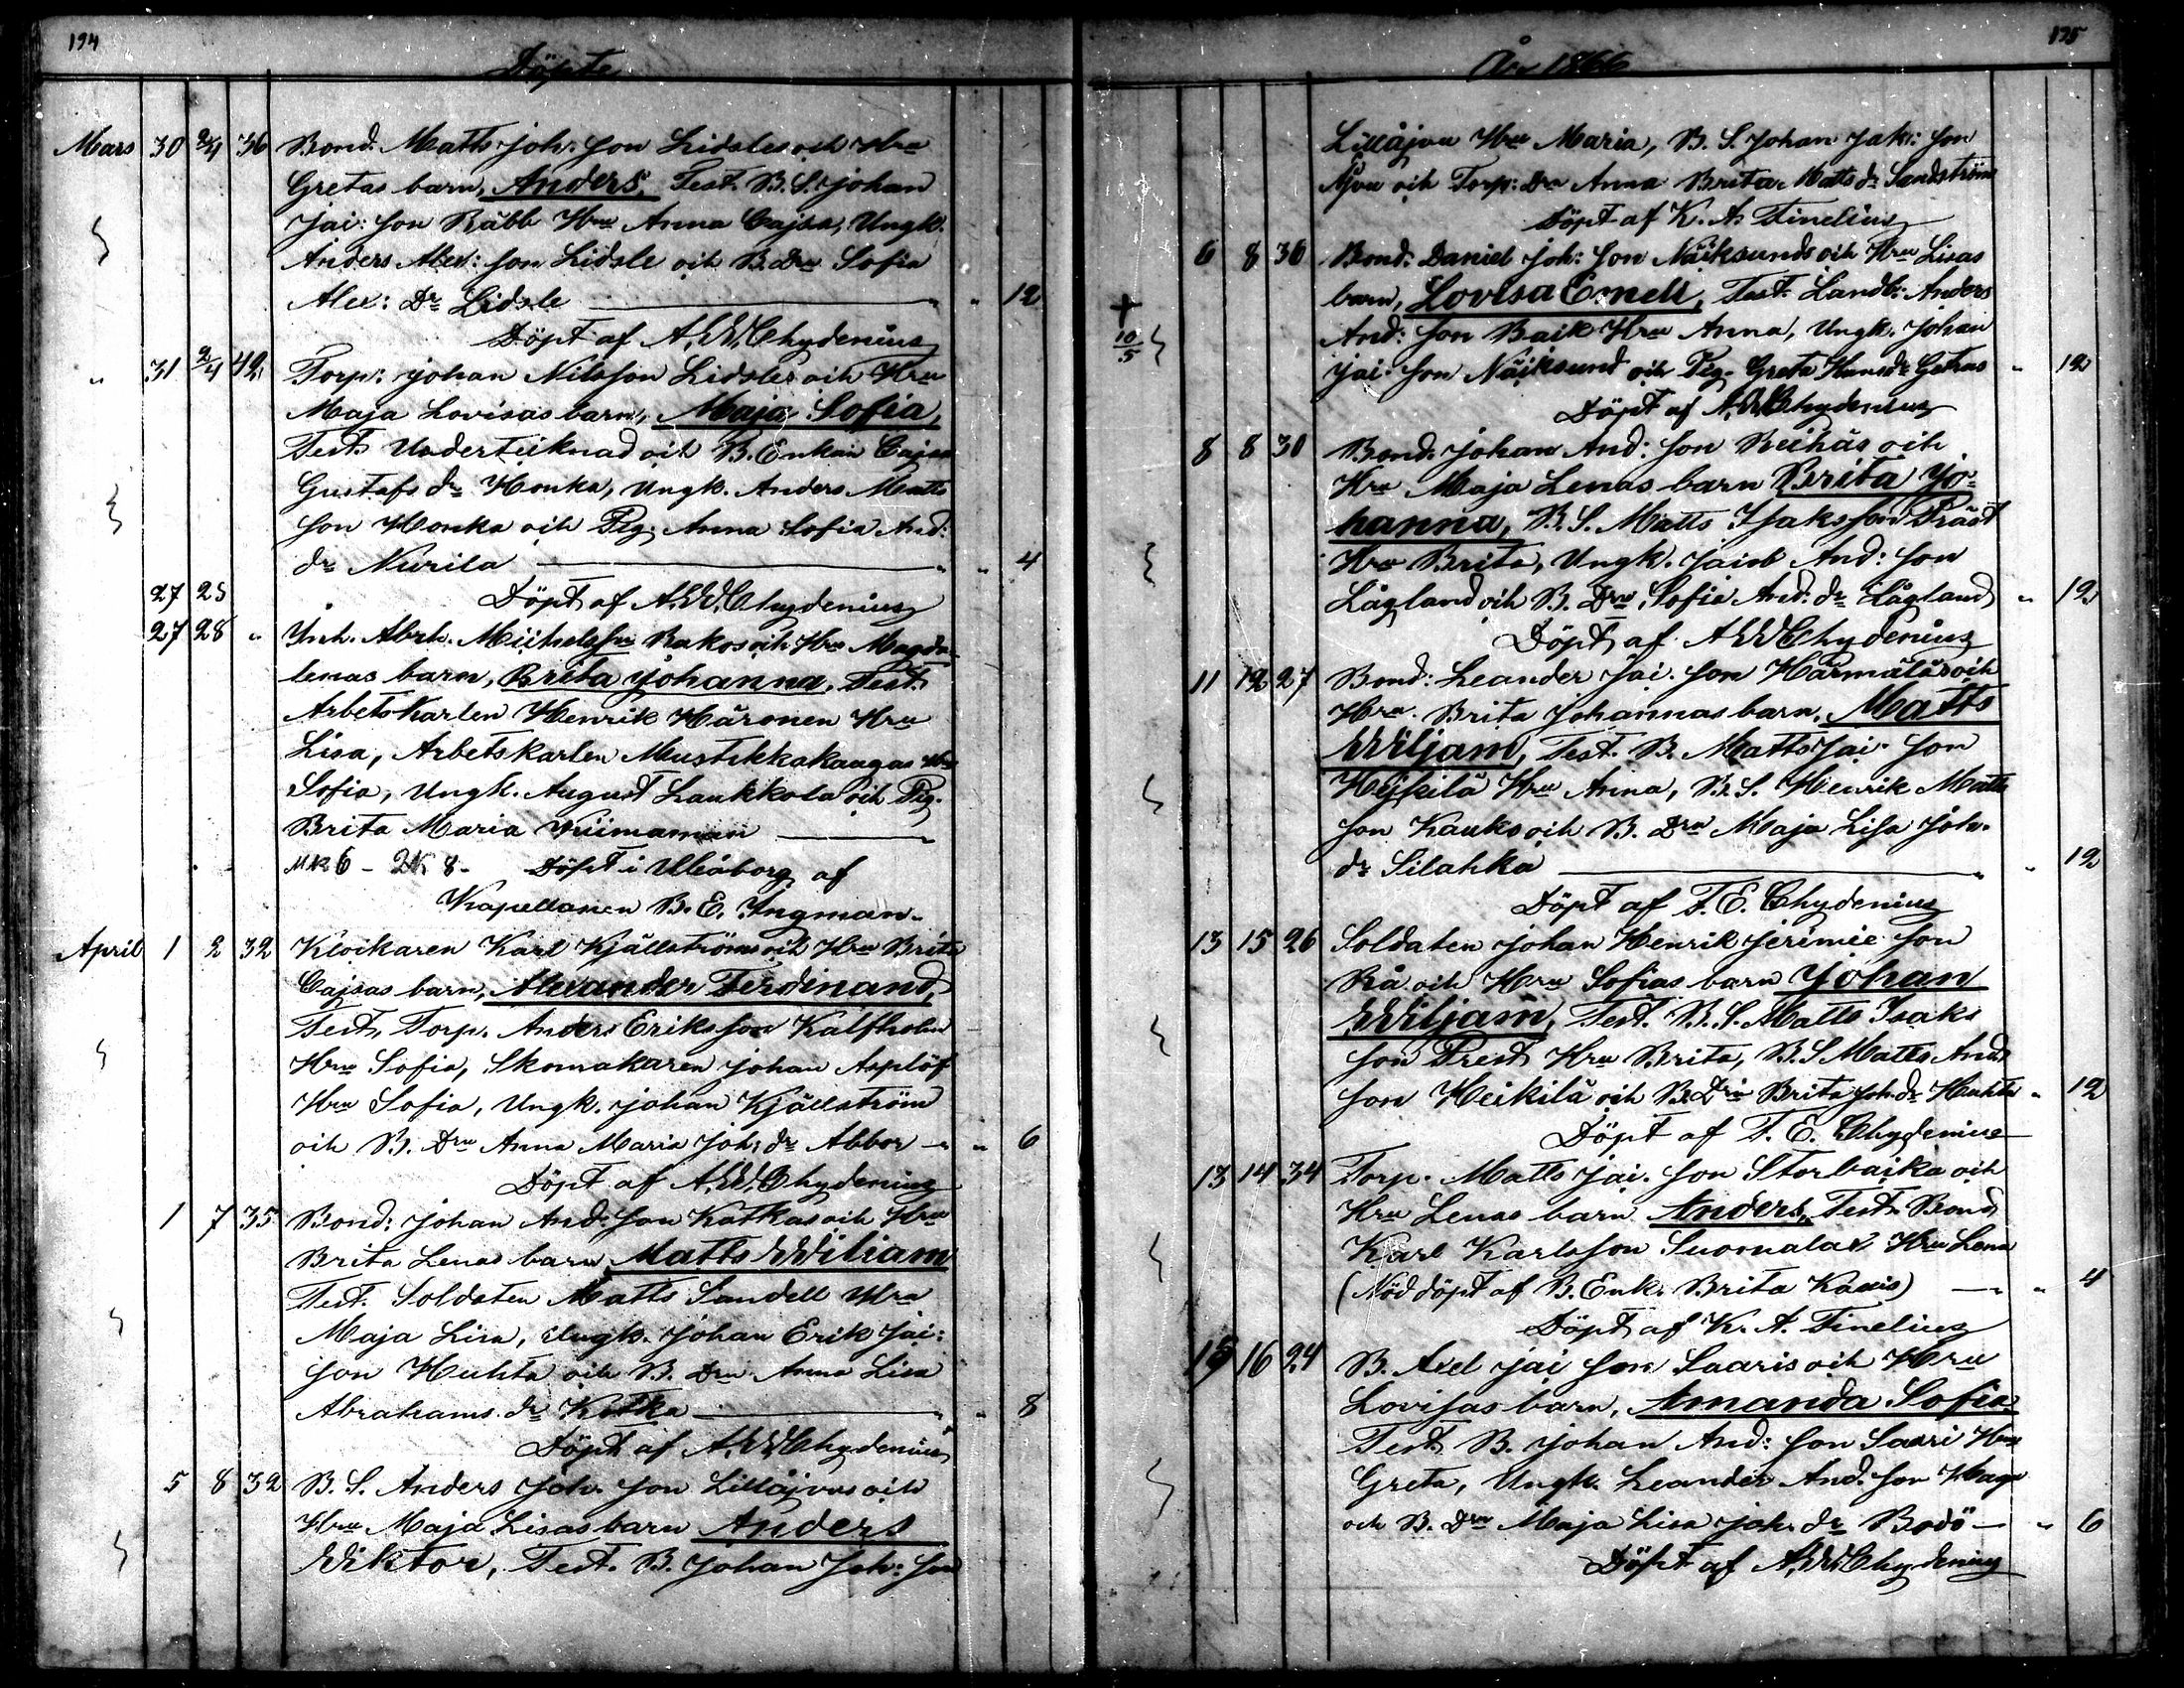 194
Döpte
Mars 30 2/4 36 Bond. Matts Joh: Son Lidsles och Hru
Gretas barn, Anders, Test. B. S. Johan
Jac: Son Räbb Hru Anna Cajsa, Ungk.
Anders Alex: Son Lidsle och B. Dru Sofia
Alex: Dr Lidsle — " " 12
Döpt af A. W. Chydenius
" 31 2/4 42 Torp: Johan Nilsson Lidsles och Hru
Maja Lovisas barn, Maja Sofia,
Test. Undertecknad och B. Enkan Cajsa
Gustafs dr Honka, Ungk. Anders Matts
Son Honka och Pig. Anna Sofia And:
dr Nurila — " " 4
27 28 Döpt af A. W. Chydenius
27 28 " Inh. Abrh. Michelsson Rakos och Hru Magda
lenas barn, Brita Johanna, Test.
Arbetskarlen Henrik Häronen Hru
Lisa, Arbetskarlen Mustikkakangas Hru
Sofia, Ungk. August Laukkola och Pig.
Brita Maria Kiimamaan — "
MK 6 - 2K 8. Döpt i Uleåborg af
Kapellanen B. E. Ingman.
April 1 2 32 Klockaren Karl Kjällströms och Hru Brita
Cajsas barn, Alexander Ferdinand,
Test. Torp. Anders Eriksson Kalfholm
Hru Sofia, Skomakaren Johan Asplöf
Hru Sofia, Ungk. Johan Kjällström
och B. Dru Anna Maria Joh: dr Abbor — " " 6
Döpt af A. W. Chydenius
1 7 35 Bond: Johan And: Son Kotkas och Hru
Brita Lenas barn Matts Wiliam
Test. Soldaten Matts Sandell Hru
Maja Lisa, Ungk. Johan Erik Jac:
Son Huhta och B. Dru Anna Lisa
Abrahams dr Kotka — " " 8
Döpt af A. W. Chydenius
5 8 32 B. S. Anders Joh. Son Lillåjvus och
Hru Maja Lisas barn Anders
Wiktor, Test. B. Johan Joh: Son
195
År 1866
Lillåjvu Hru Maria, B. S. Johan Jak: Son
Åjvu och Torp: Dru Anna Brita Matts dr Sandström
Döpt af K. A. Finelius
6 8 36 Bond: Daniel Joh: Son Näiksunds och Hru Lisas
barn, Lovisa Emeli, Test. Landb: Anders
+ 10/5 And: Son Baik Hru Anna, Ungk. Johan
Jac. Son Näiksund och Pig. Greta Hans dr Gethas " 12
Döpt af A. W. Chydenius
8 8 30 Bond. Johan And: Son Reihäs och
Hru Maja Lenas barn Brita Jo-
hanna, B. S. Matts Isaksson Präst
Hru Brita, Ungk. Jacob And: Son
Lågland och B. Dru Sofia And. dr Lågland " 12
Döpt af A. W. Chydenius
11 12 27 Bond: Leander Jac. Son Harmälas och
Hru Brita Johannas barn, Matts
Wiljam, Test. B. Matts Jac. Son
Hejkilä Hru Anna, B. S. Henrik Matts
Son Kauko och B. Dru Maja Lisa Joh.
dr Silahka — " " 12
Döpt af F. E. Chydenius
13 15 26 Soldaten Johan Henrik Jerimie Son
Rå och Hru Sofias barn Johan
Wiljam, Test. B. S. Matts Isaks
Son Prest Hru Brita, B. S. Matts And:
Son Heikilä och B. Dru Brita Joh. dr Huhta " 12
Döpt af F. E. Chydenius
13 14 34 Torp. Matts Jac. Son Storbacka och
Hru Lenas barn Anders, Test. Bond
Karl Karlsson Suomalas Hru Lena
(Nöddöpt af B. Enk. Brita Kauis) — " " 4
Döpt af K. A. Finelius
15 16 24 B. Axel Jac Son Saaris och Hru
Lovisas barn, Amanda Sofia
Test. B. Johan And: Son Saari Hru
Greta, Ungk. Leander And. Son Haga
och B. Dru Maja Lisa Joh. dr Bodö — " 6
Döpt af A. W. Chydenius